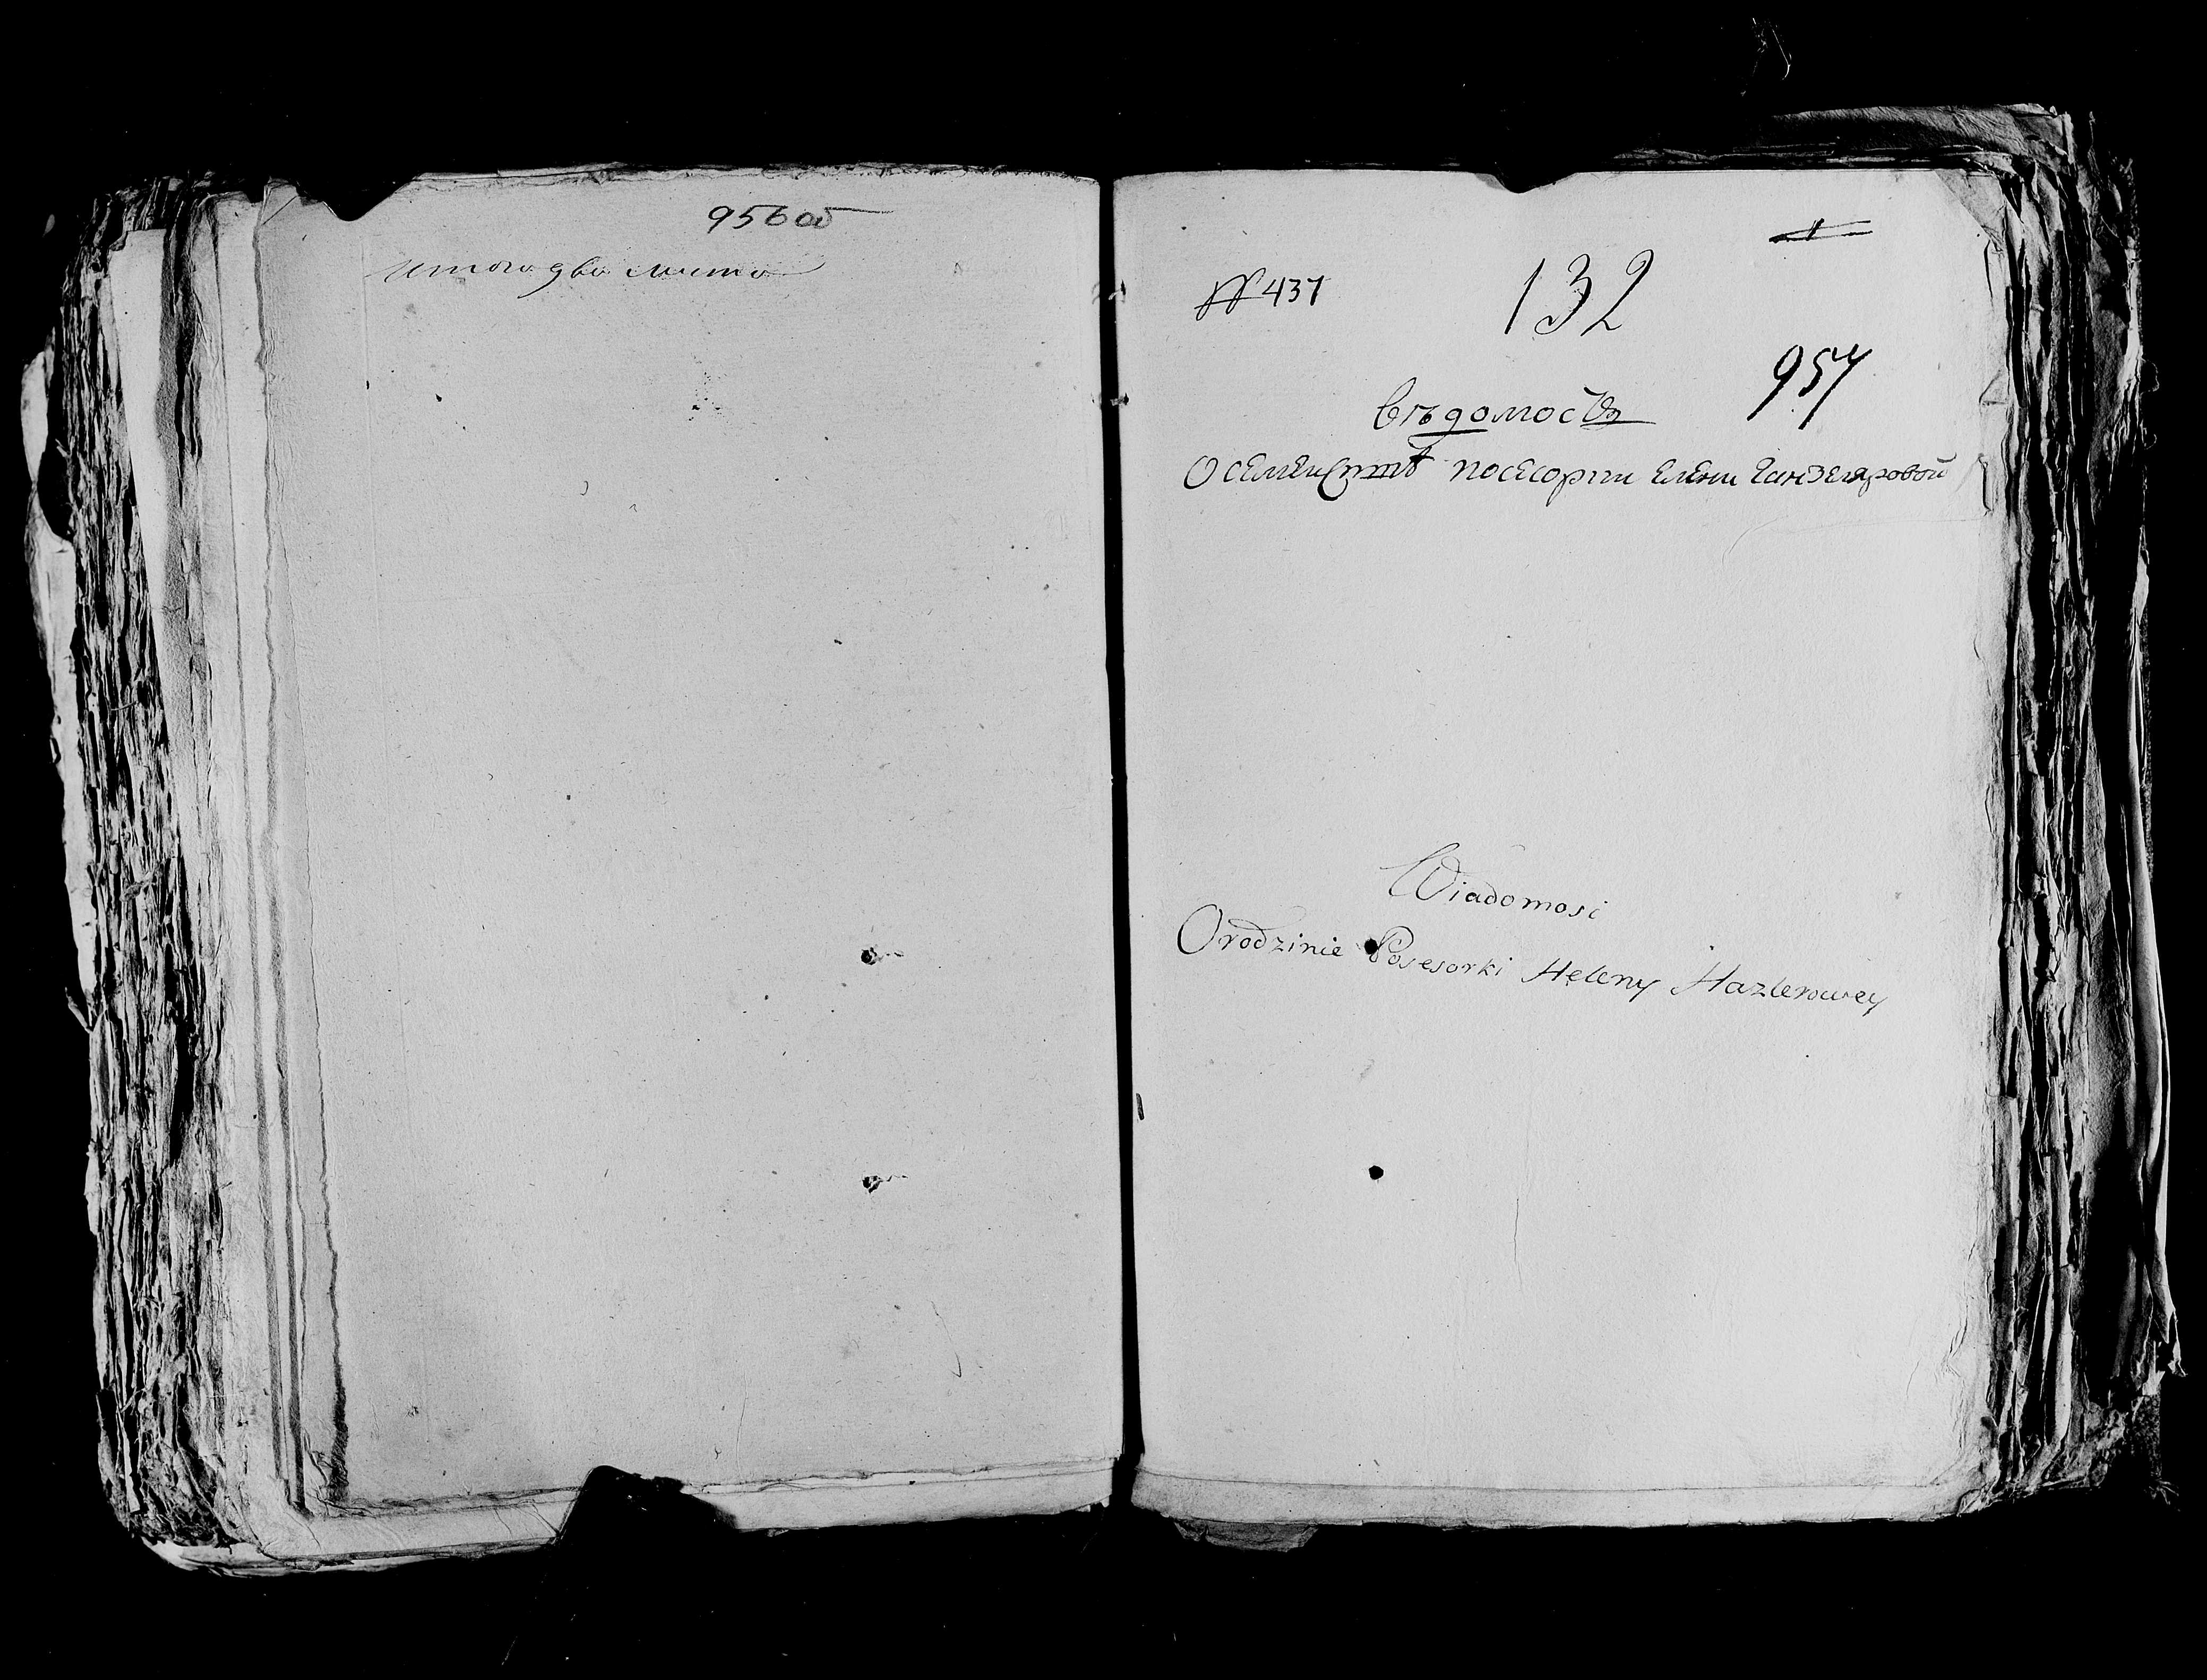 956об
итого два листа
№ 437
132
957
Вѣдомость
О семействѣ посесорши Елени Ганзеляровой
Wiadomosc
O rodzinie Posesorki Heleny Hazlerowey